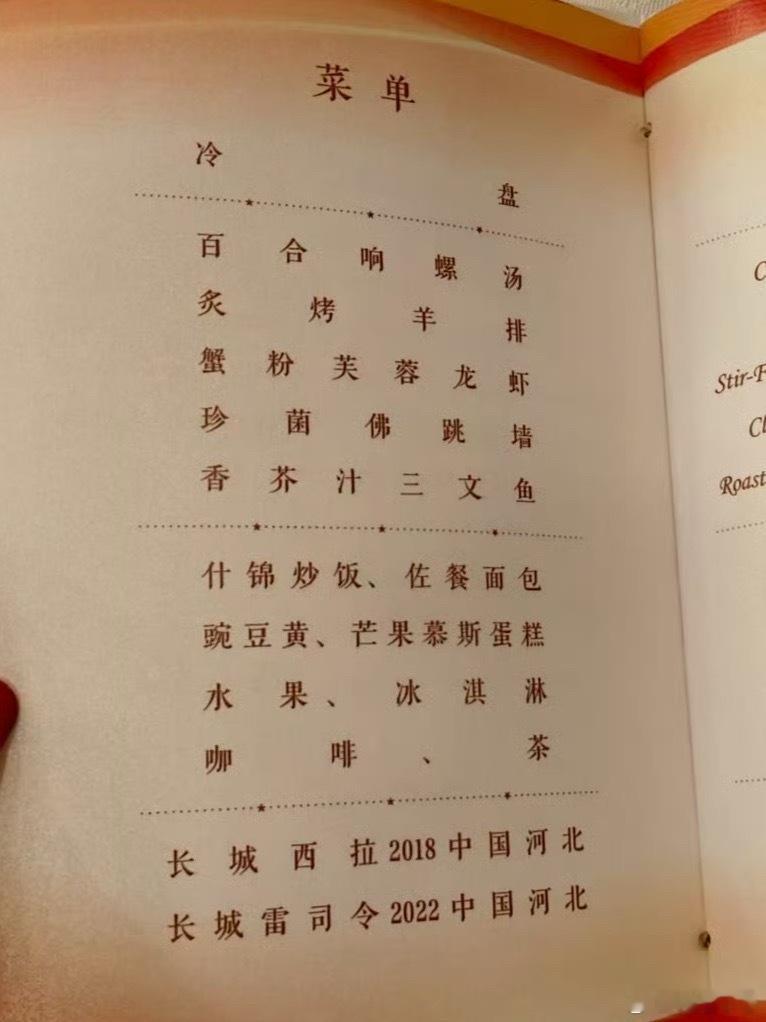 菜单
冷盘
百合响螺汤
炙烤羊排
蟹粉芙蓉龙虾
珍菌佛跳墙
香芥汁三文鱼
什锦炒饭、佐餐面包
豌豆黄、芒果慕斯蛋糕
水果、冰淇淋
咖啡、茶
长城西拉2018中国河北
长城雷司令2022中国河北
C
Stir-F
Cl
Roast